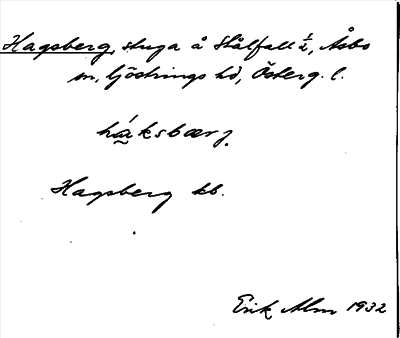 Hagsberg, stuga å Stålfall ½, Åsbo
sn, Göstrings hd, Österg. l.
háksbærj.
Hagsberg kb.
Erik Alm 1932